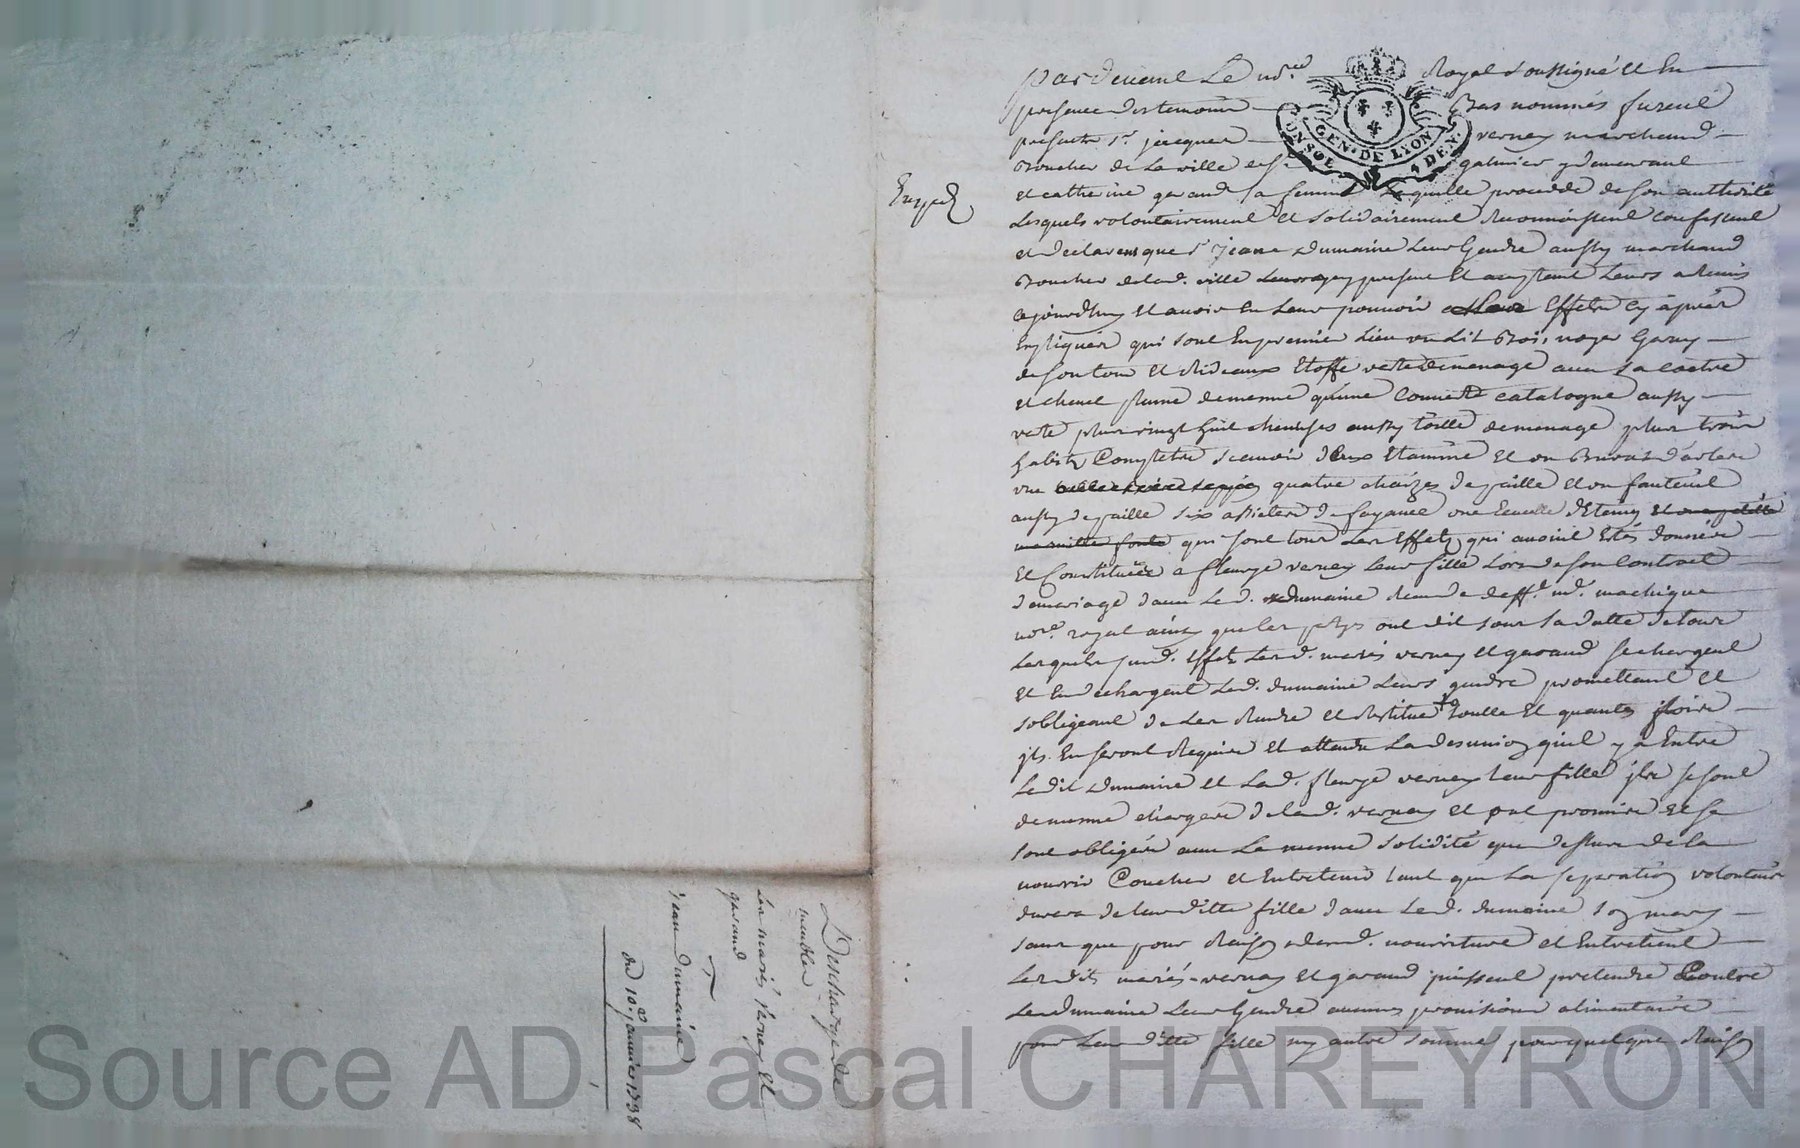 pardevant Le no.re Royal soussigné et En
presence des temoins Bas nommés furent
presents s.r jacques verney marchand
Boucher de La ville de s.t galmier y demeurant
et catherine garand sa femme Laquelle procede de son authorité
Lesquels volontairement et solidairement Reconnoissent confessent
et declarent que s.r jean dumaine Leur Gendre aussy marchand
Boucher de lad. ville present et acceptant Leurs a Remis
cejourdhuy et avoir En Leur pouvoir Les Effets cy après
Expliqués qui sont En premier Lieu un Lit Bois noyer Garny
de son tour et Rideaux Etoffe verte de menage avec sa coetre
et chevet plume de mesme qu'une Couverte catalogne aussy
verte plus vingt huit chemises aussy toille de menage plus trois
habits Complets scavoir deux Etamine et un
une quatre chaizes de paille et un fauteuil
aussy de paille six assietes de fayance une Ecuelle d'Etaing
qui sont tous Les Effets qui avoint Estés donnés
Et Constitués a fleurye verney Leur fille Lors de son Contract
de mariage d'avec Le d. dumaine Receu de deff.t m.e
no.re royal ainsy que les partyes ont dit sous sa datte de tous
Lesquels susd. Effets Lesd. mariés verney et garand se chargent
et En dechargent Led. dumaine Leurs gendre promettant et
s'obligeant de Les Rendre et Restituer toutte et quantes foix
jls En seront Requis et attendu La desunion qu'il y a Entre
Le dit dumaine et Lad. fleurye verney Leur fille jls se sont
de mesme chargés de lad. verney et ont promis et se
sont obligés avec La mesme solidité que dessus de la
nourir Coucher et Entretenir tant que La separation volontaire
durera de leur ditte fille d'avec Led. dumaine son mary
sans que pour Raison desd. nourriture et Entretient
Lesdits mariés verney et garand puissent pretendre Contre
Led dumaine Leur Gendre aucunes provisions alimentaire
pour Leur ditte fille ny autre somme pour quelque Raison
Exped
Descharge de
meubles
Les mariés Verney et
garand
a
jean dumaine
du 10.e janvier 1738
UN SOL GEN. DE LYON 4 DEN.
Source AD Pascal CHAREYRON